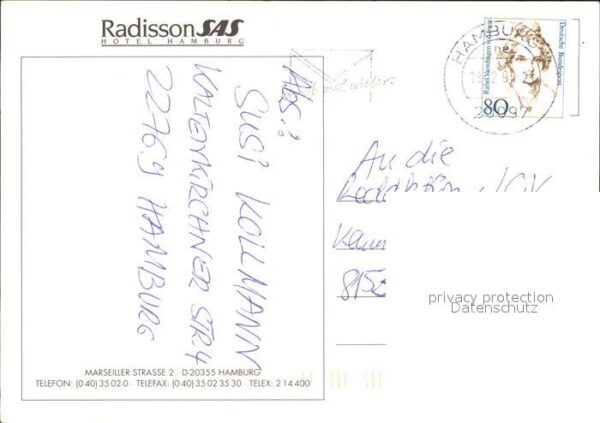 Radisson SAS
HOTEL HAMBURG
Abs.:
SUSI KOLLMANN
WALTENKIRCHNER STR. 4
22769 HAMBURG
MARSEILLER STRASSE 2 · D-20355 HAMBURG
TELEFON: (0 40) 35 02-0 · TELEFAX: (0 40) 35 02 35 30 · TELEX: 2 14 400
HAMBURG
20097
Deutsche Bundespost
Rahel Varnhagen von Ense
80
An die
815
privacy protection
Datenschutz